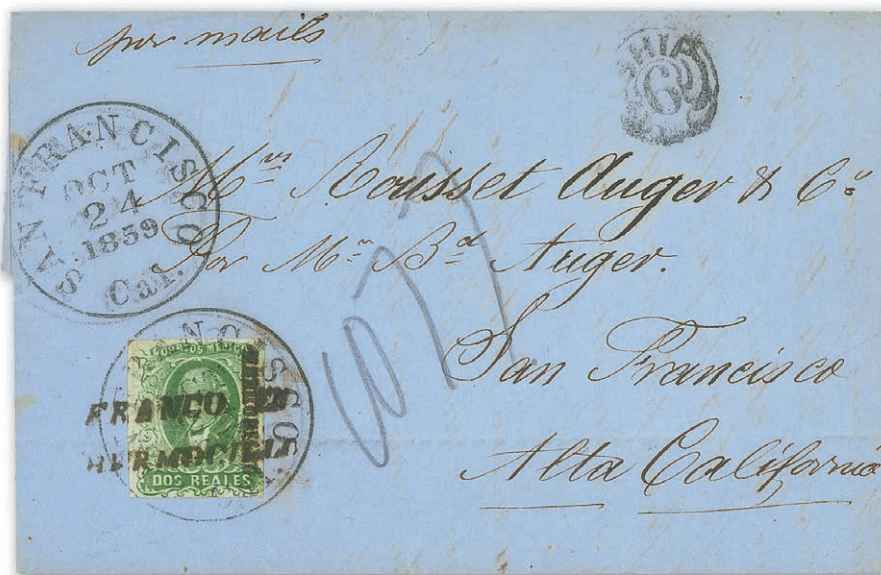 por mails
SHIP
6
SAN FRANCISCO
OCT
24
1859
Cal.
Mrs Rousset Auger & Co
Por Mr Bd Auger.
San Francisco
Alta California
CORREOS MEJICO
FRANCO EN
HERMOSILLO
DOS REALES